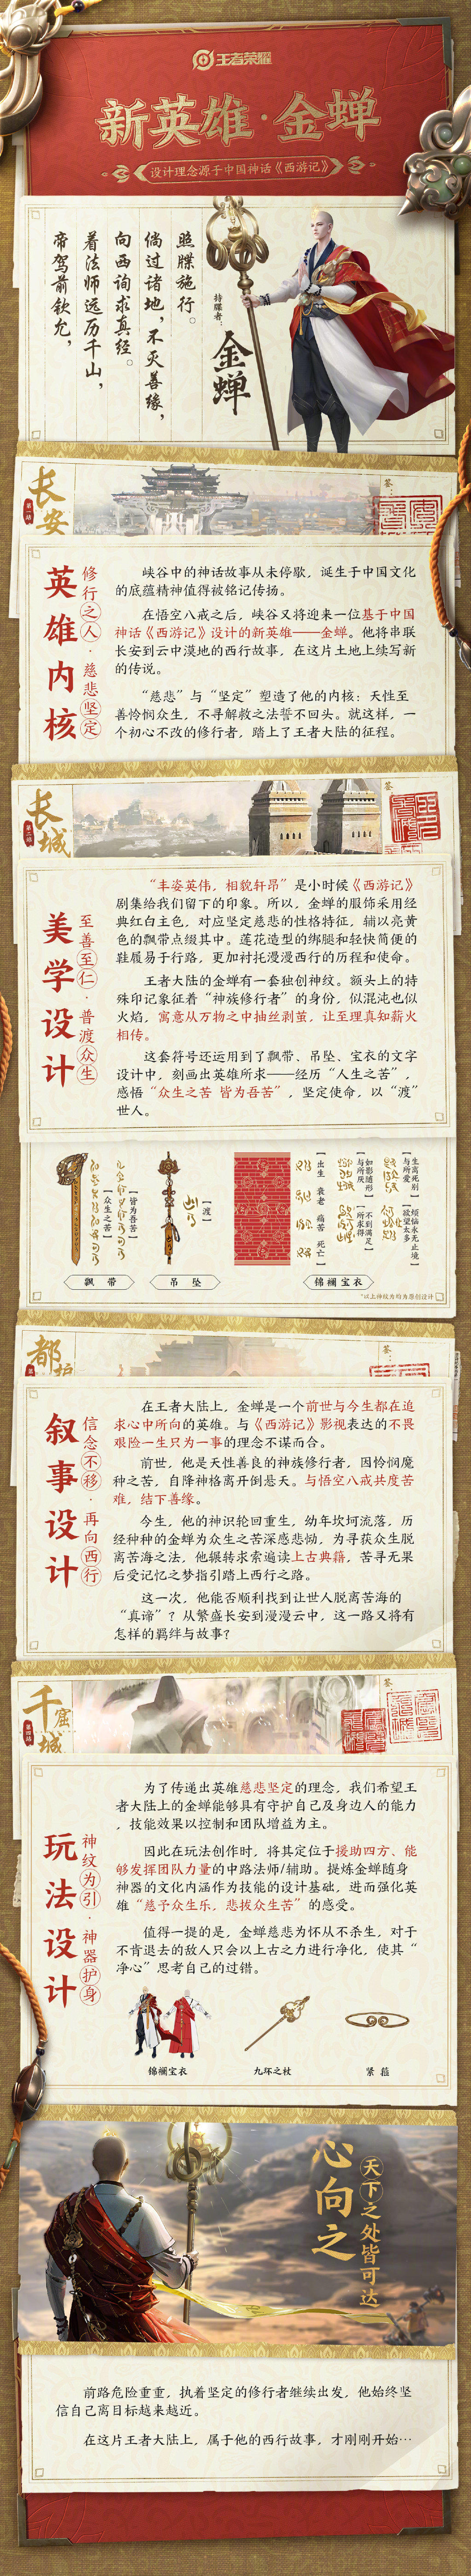 王者荣耀
新英雄·金蝉
设计理念源于中国神话《西游记》
帝驾前钦允，
着法师远历千山，
向西询求真经。
倘过诸地，不灭善缘，
照牒施行。
持牒者：
金蝉
第一站
长安
签：
英雄内核
修行之人·慈悲坚定
峡谷中的神话故事从未停歇，诞生于中国文化
的底蕴精神值得被铭记传扬。
在悟空八戒之后，峡谷又将迎来一位基于中国
神话《西游记》设计的新英雄——金蝉。他将串联
长安到云中漠地的西行故事，在这片土地上续写新
的传说。
“慈悲”与“坚定”塑造了他的内核：天性至
善怜悯众生，不寻解救之法誓不回头。就这样，一
个初心不改的修行者，踏上了王者大陆的征程。
第二站
长城
签：
美学设计
至善至仁·普渡众生
“丰姿英伟，相貌轩昂”是小时候《西游记》
剧集给我们留下的印象。所以，金蝉的服饰采用经
典红白主色，对应坚定慈悲的性格特征，辅以亮黄
色的飘带点缀其中。莲花造型的绑腿和轻快简便的
鞋履易于行路，更加衬托漫漫西行的历程和使命。
王者大陆的金蝉有一套独创神纹。额头上的特
殊印记象征着“神族修行者”的身份，似混沌也似
火焰，寓意从万物之中抽丝剥茧，让至理真知薪火
相传。
这套符号还运用到了飘带、吊坠、宝衣的文字
设计中，刻画出英雄所求——经历“人生之苦”，
感悟“众生之苦 皆为吾苦”，坚定使命，以“渡”
世人。
【众生之苦】
【皆为吾苦】
【渡】
【出生 衰老 痛苦 死亡】
【如影随形与所厌】
【不到满足所求得】
【生离死别与所爱】
【烦恼永无止境欲望太多】
飘 带
吊 坠
锦襕宝衣
*以上神纹均为原创设计
都护
签：
叙事设计
信念不移·再向西行
在王者大陆上，金蝉是一个前世与今生都在追
求心中所向的英雄。与《西游记》影视表达的不畏
艰险一生只为一事的理念不谋而合。
前世，他是天性善良的神族修行者，因怜悯魔
种之苦，自降神格离开倒悬天。与悟空八戒共度苦
难，结下善缘。
今生，他的神识轮回重生，幼年坎坷流落，历
经种种的金蝉为众生之苦深感悲恸，为寻获众生脱
离苦海之法，他辗转求索遍读上古典籍，苦寻无果
后受记忆之梦指引踏上西行之路。
这一次，他能否顺利找到让世人脱离苦海的
“真谛”？从繁盛长安到漫漫云中，这一路又将有
怎样的羁绊与故事？
第四站
千窟城
签：
玩法设计
神纹为引·神器护身
为了传递出英雄慈悲坚定的理念，我们希望王
者大陆上的金蝉能够具有守护自己及身边人的能力
，技能效果以控制和团队增益为主。
因此在玩法创作时，将其定位于援助四方、能
够发挥团队力量的中路法师/辅助。提炼金蝉随身
神器的文化内涵作为技能的设计基础，进而强化英
雄“慈予众生乐，悲拔众生苦”的感受。
值得一提的是，金蝉慈悲为怀从不杀生，对于
不肯退去的敌人只会以上古之力进行净化，使其“
净心”思考自己的过错。
锦襕宝衣
九环之杖
紧 箍
心向之
天下之处皆可达
前路危险重重，执着坚定的修行者继续出发，他始终坚
信自己离目标越来越近。
在这片王者大陆上，属于他的西行故事，才刚刚开始…